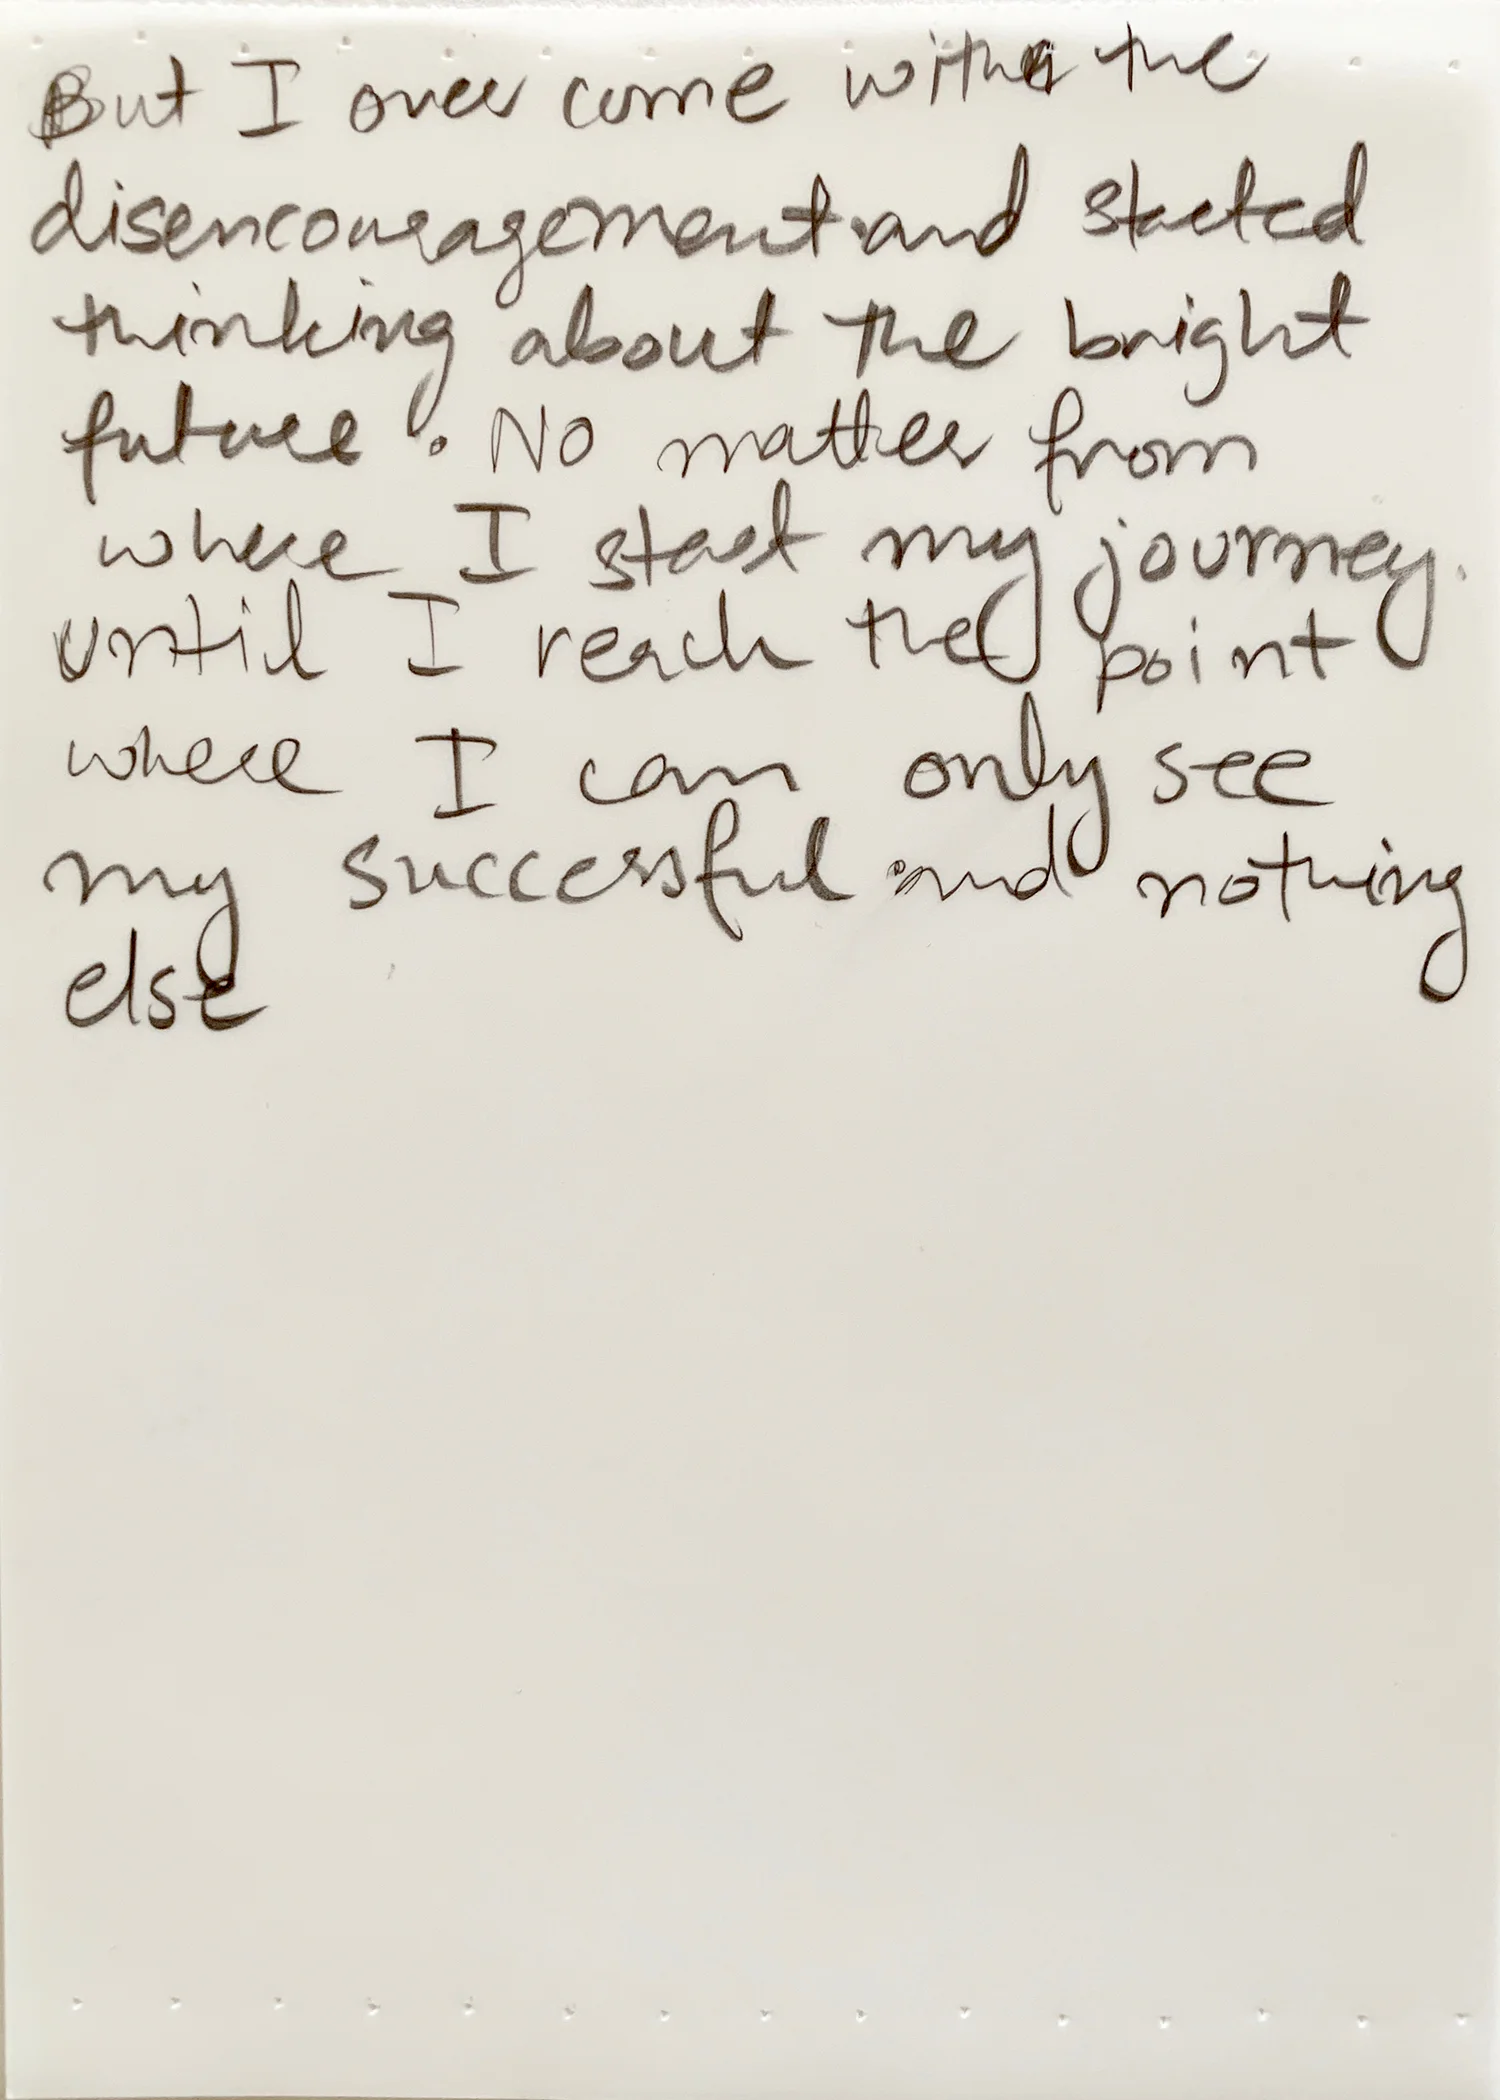 But I over come with the
disencouragement and started
thinking about the bright
future. No matter from
where I start my journey.
until I reach the point
where I can only see
my successful and nothing
else